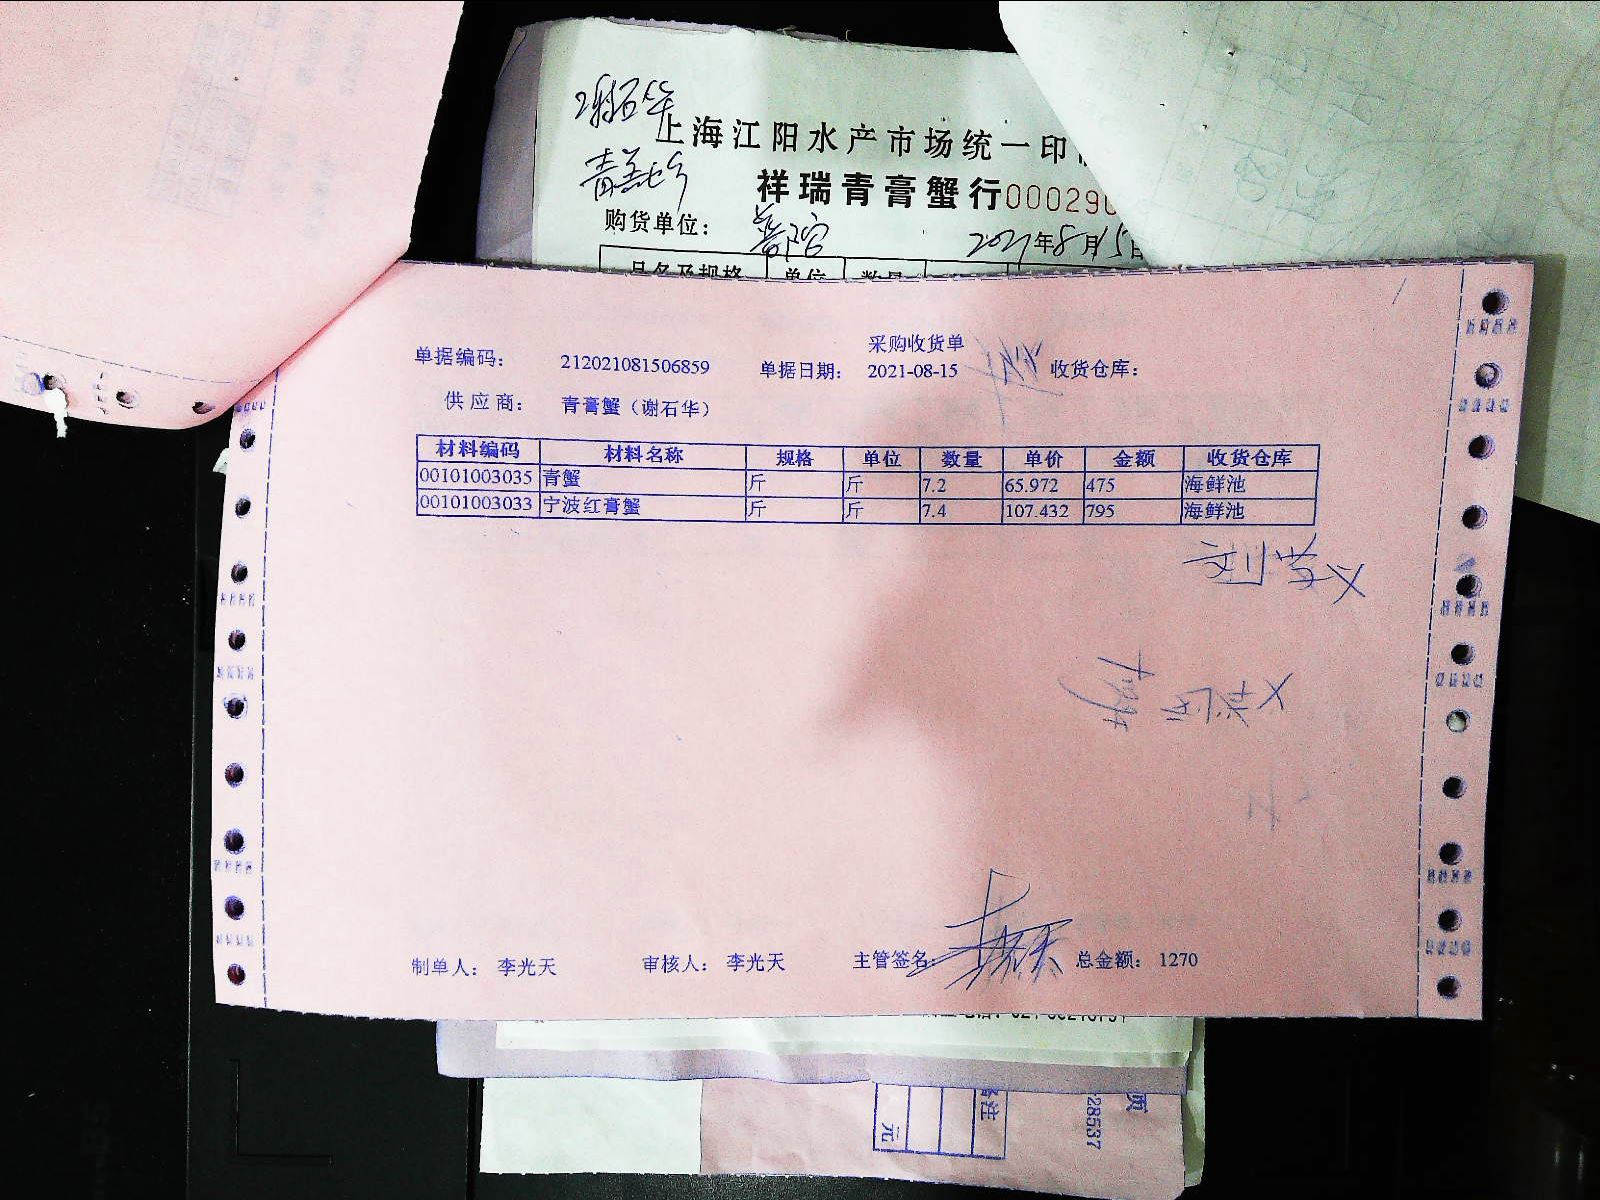 谢石华
上海江阳水产市场统一印
青膏蟹
祥瑞青膏蟹行 000290
购货单位:
2021年8月15日
品名及规格 单位 数量
采购收货单
单据编码: 212021081506859 单据日期: 2021-08-15 收货仓库:
供应商: 青膏蟹（谢石华）
材料编码 材料名称 规格 单位 数量 单价 金额 收货仓库
00101003035 青蟹 斤 斤 7.2 65.972 475 海鲜池
00101003033 宁波红膏蟹 斤 斤 7.4 107.432 795 海鲜池
制单人: 李光天 审核人: 李光天 主管签名: 总金额: 1270
备注
元
页
28537